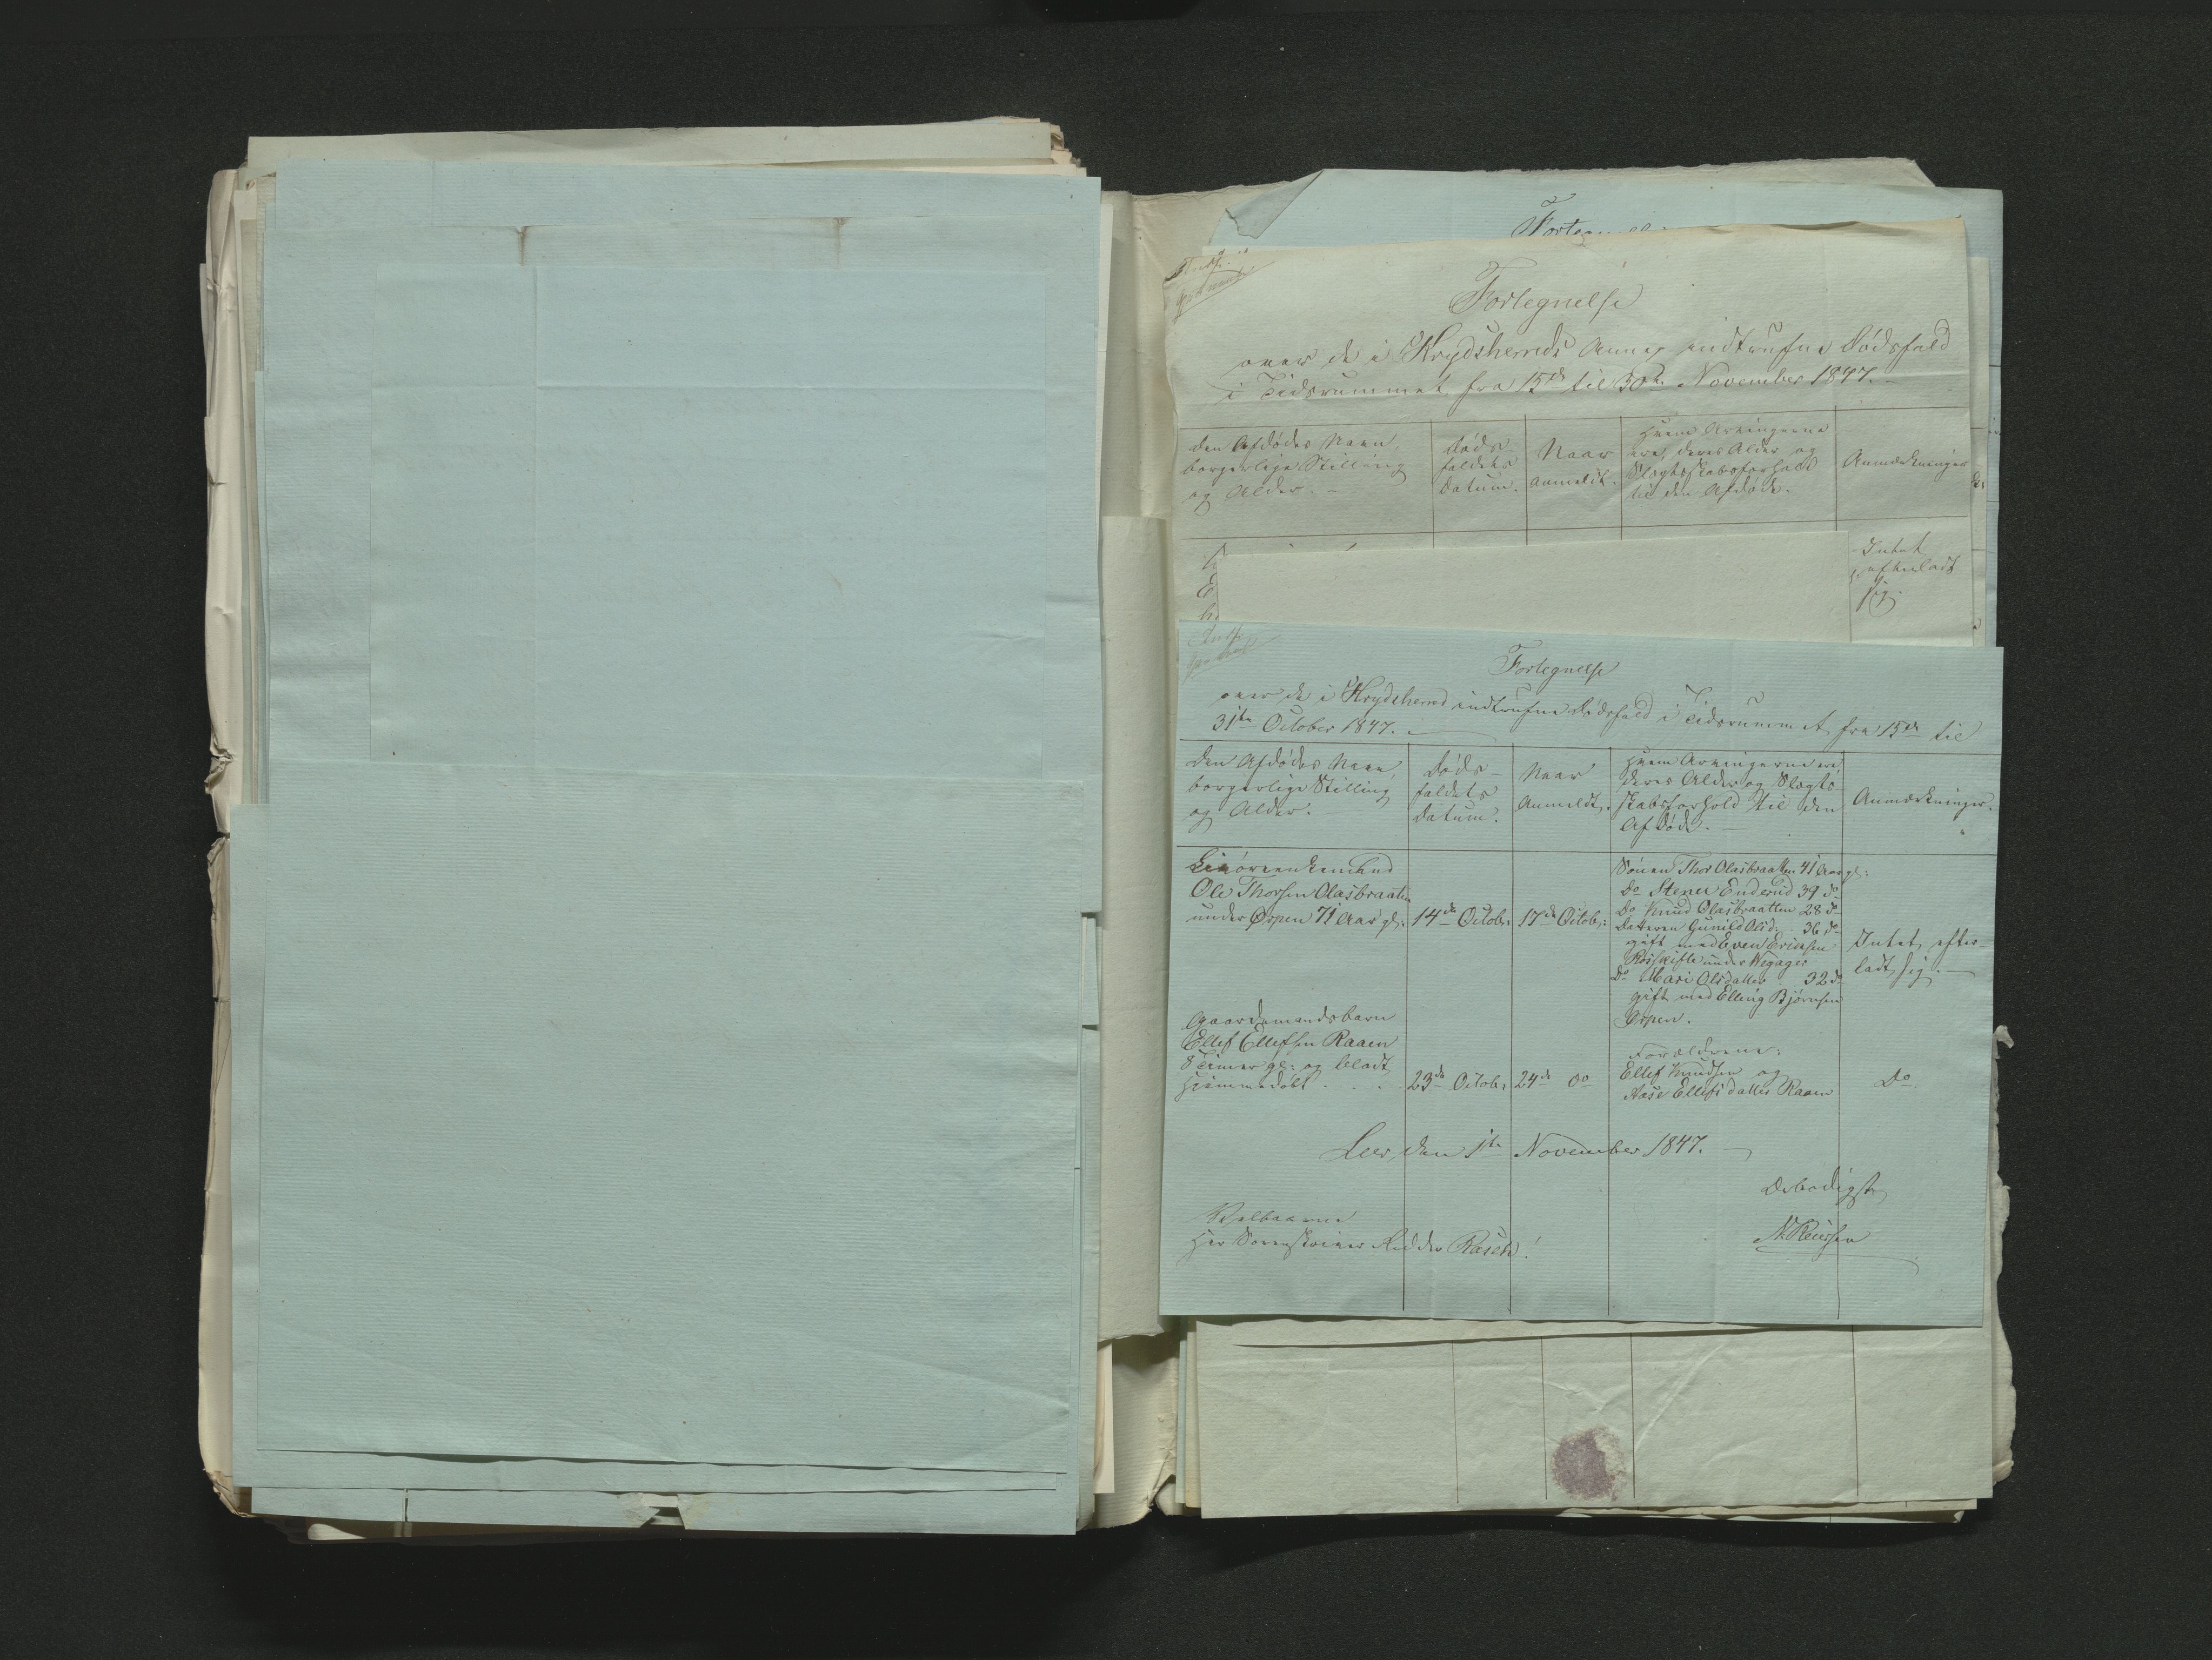 Fortegnelse
Fortegnelse
over de i Krydsherreds Annex indtrufne Dødsfald
i Tidsrummet fra 15de til 30te November 1847.
Den Afdødes Navn,
borgerlige Stilling
og Alder.
Døds-
faldets
Datum.
Naar
anmeldt.
Hvem Arvingerne
ere, deres Alder og
Slægtskabsforhold
til den Afdøde.
Anmærkninger
Intet
efterladt
sig.
Fortegnelse
over de i Krydsherred indtrufne Dødsfald i Tidsrummet fra 15de til
31te October 1847.
Den Afdødes Navn,
borgerlige Stilling
og Alder.
Døds-
faldets
Datum.
Naar
Anmeldt.
Hvem Arvingerne ere
deres Alder og Slægts-
skabsforhold til den
Afdøde.
Anmærkninger.
Ole Thorsen Olasbraaten
under Ørpen 71 Aar gl:
14de Octob:
17de Octob:
Sønen Thor Olasbraatten 41 Aar gl:
Do Stener Enderud 39 do
Do Knud Olasbraatten 28 do
Datteren Gunild Olsd: 36 do
gift med Even Ericksen
under Wegager
Do Mari Olsdatter 32 do
gift med Elling Bjørnsen
Ørpen.
Intet efter-
ladt sig.
Gaardmandsbarn
Ellef Ellefsen Raaen
8 Timer gl: og bleodt
Hjemmedøbt
23de Octob:
24de do
Forældrene:
Ellef Knudsen og
Aase Ellefsdatter Raaen
Do
Leer den 1te November 1847.
Ærbødigst
Velbaarne
Her Sorenskriver Ridder Rasch!